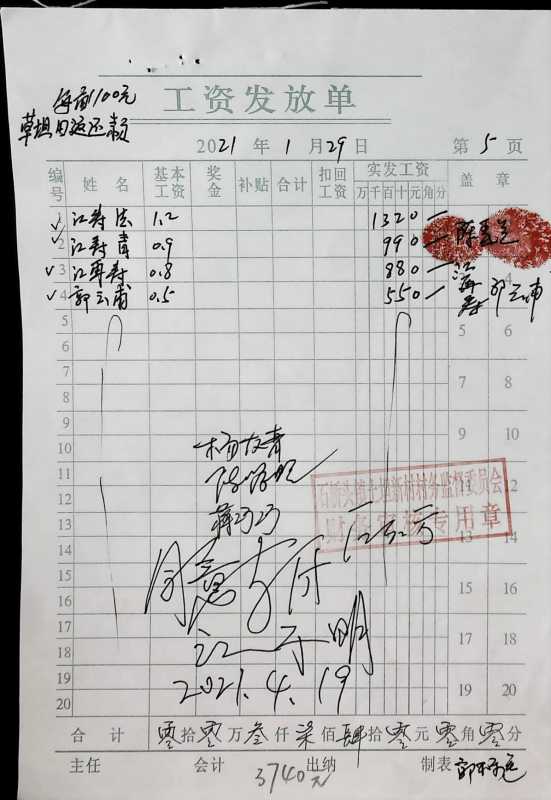 每亩1100元
工资发放单
2021年1月29日
第5页
编号 姓名 基本工资 奖金 补贴 合计 扣回工资 实发工资 盖章
万千百十元角分
1 江寿法 1.2 1320
2 江寿青 0.9 990
3 江再寿 0.8 880
4 郭云甫 0.5 550
郭云甫
4
5 5 6
6
7 7 8
8
9 9 10
10
11 11 12
12
13 13 14
14
15 15 16
16
17 17 18
18
19 19 20
20
杨友青
村务监督委员会
财务审核专用章
同意支付
2021.4.19
合计 零拾零万叁仟柒佰肆拾零元零角零分
主任 会计 出纳 制表
3740元